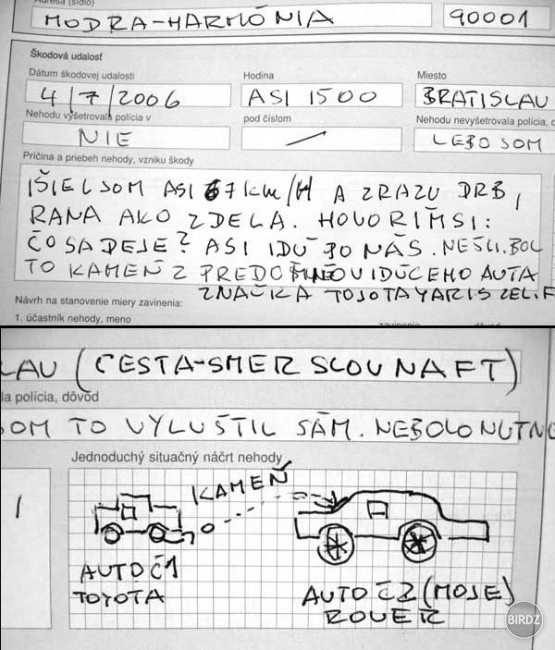 Adresa (sídlo)
MODRA-HARMÓNIA 90001
Škodová udalosť
Dátum škodovej udalosti Hodina Miesto
4/7/2006 ASI 1500 BRATISLAV
Nehodu vyšetrovala polícia v pod číslom Nehodu nevyšetrovala polícia, d
NIE LEBO SOM
Príčina a priebeh nehody, vzniku škody
IŠIEL SOM ASI 67km/H A ZRAZU DRB,
RANA AKO Z DELA. HOVORÍM SI:
ČO SA DEJE? ASI IDÚ PO NÁS. NEŠLI. BOL
TO KAMEŇ Z PREDO MNOU IDÚCEHO AUTA
ZNAČKA TOJOTA YARIS ZEL. F
Návrh na stanovenie miery zavinenia:
1. účastník nehody, meno
LAV (CESTA-SMER SLOVNAFT)
la polícia, dôvod
SOM TO VYLUŠTIL SÁM. NEBOLO NUTNO
Jednoduchý situačný náčrt nehody
KAMEŇ
AUTO Č1
TOYOTA
AUTO Č2 (MOJE)
ROVER
BIRDZ